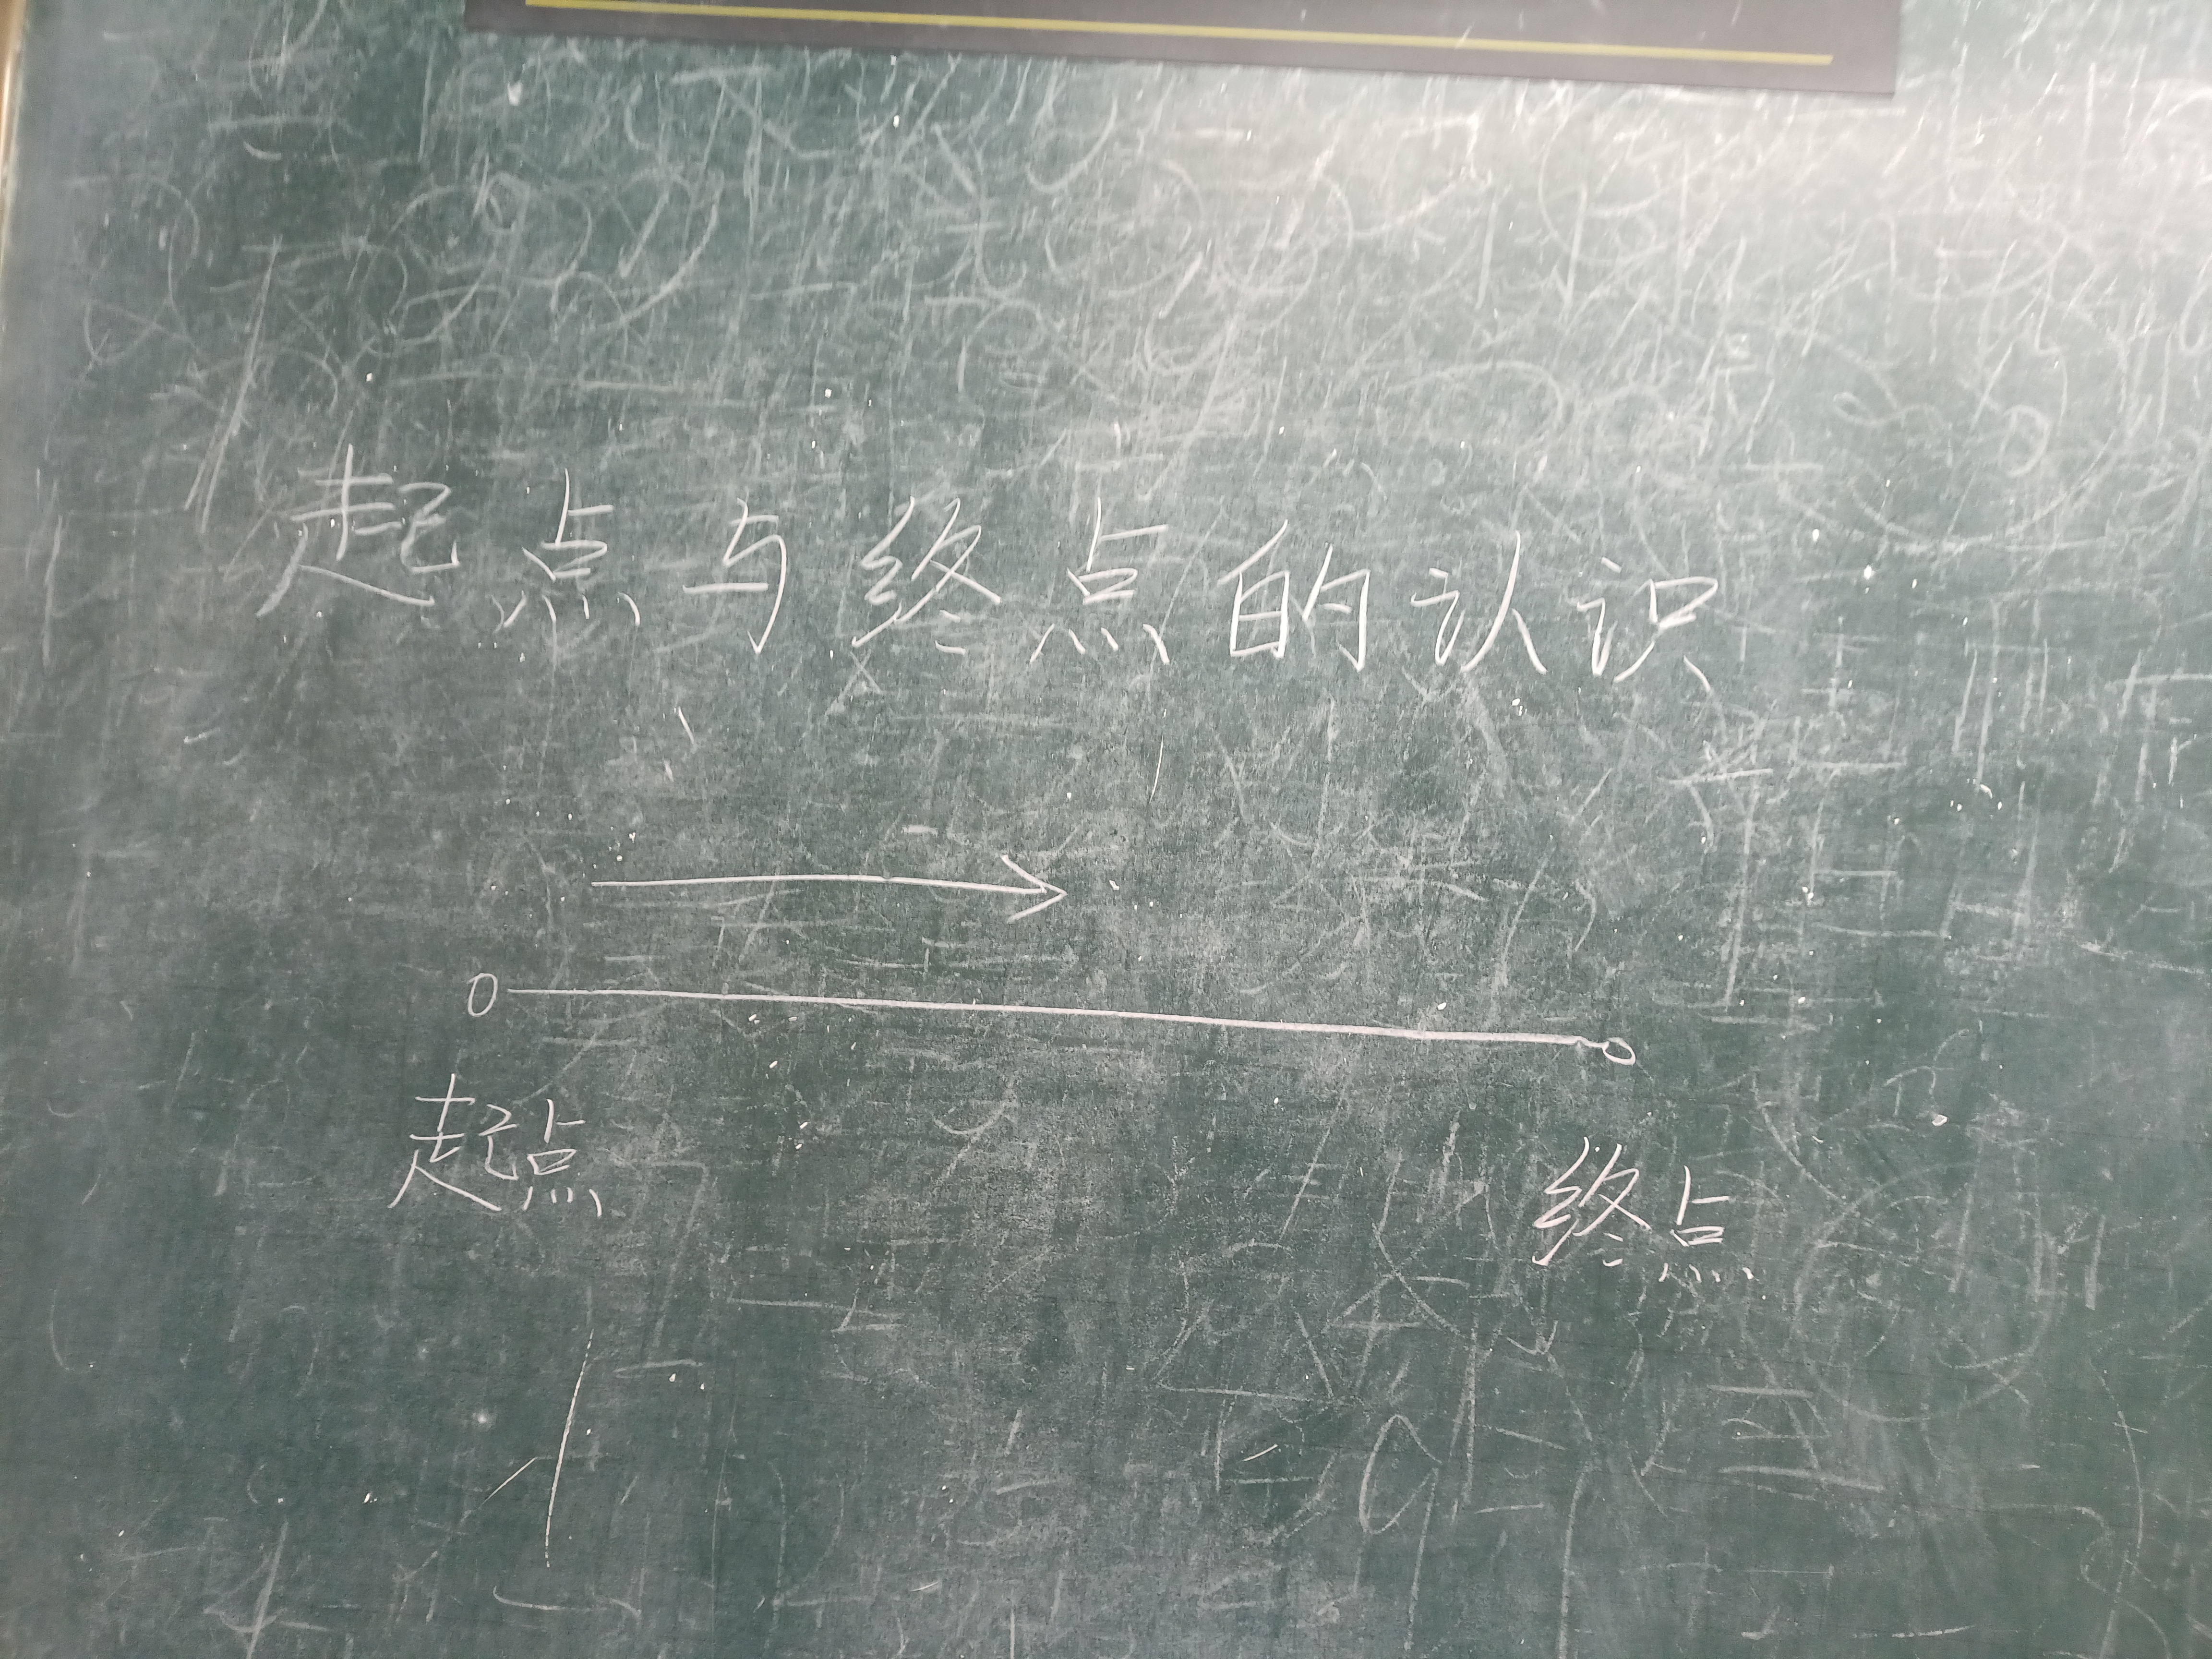 起点与终点的认识
起点
终点